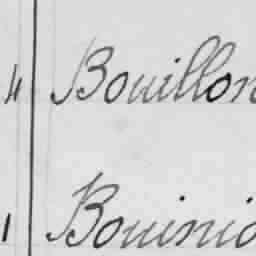 4 Bouillon
1 Bouinio